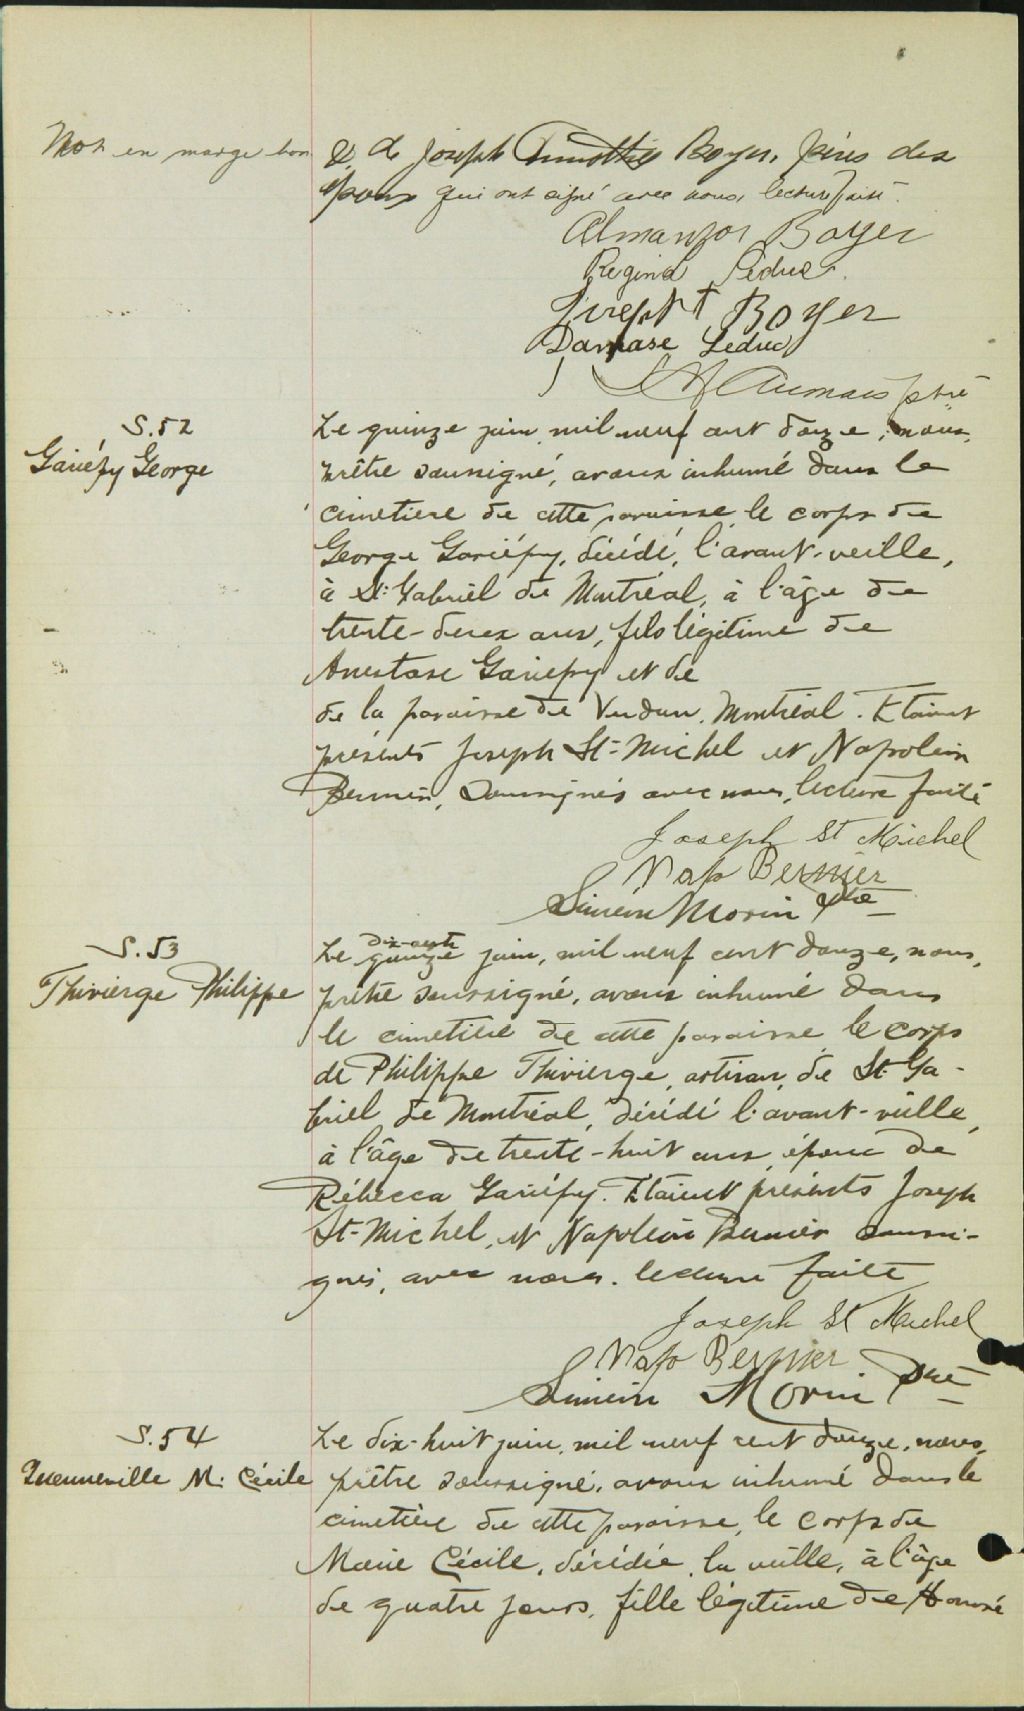 Mot en marge bon
& de Joseph Timothée Boyer, pères des
époux qui ont signé avec nous, lecture faite.
Almanzor Boyer
Regina Leduc
Joseph T Boyer
Damase Leduc
Aumais ptre
S. 52
Gariépy George
Le quinze juin, mil neuf cent douze, nous,
prêtre soussigné, avons inhumé dans le
cimetière de cette paroisse le corps de
George Gariépy, décédé, l'avant-veille,
à St-Gabriel de Montréal, à l'âge de
trente-deux ans, fils légitime de
Anastase Gariépy et de
de la paroisse de Verdun, Montréal. Etaient
présents Joseph St-Michel et Napoléon
Bernier, soussignés avec nous, lecture faite
Joseph St Michel
Nap Bernier
Siméon Morin Ptre
S. 53
Thivierge Philippe
dix-sept
Le quinze juin, mil neuf cent douze, nous,
prêtre soussigné, avons inhumé dans
le cimetière de cette paroisse, le corps
de Philippe Thivierge, artisan, de St-Ga-
briel de Montréal, décédé l'avant-veille,
à l'âge de trente-huit ans, époux de
Rébecca Gariépy. Etaient présents Joseph
St-Michel, et Napoléon Bernier soussi-
gnés, avec nous. lecture faite
Joseph St Michel
Napo Bernier
Siméon Morin Ptre
S. 54
Quenneville M. Cécile
Le dix-huit juin, mil neuf cent douze, nous,
prêtre soussigné, avons inhumé dans le
cimetière de cette paroisse, le corps de
Marie Cécile, décédée, la veille, à l'âge
de quatre jours, fille légitime de Honoré